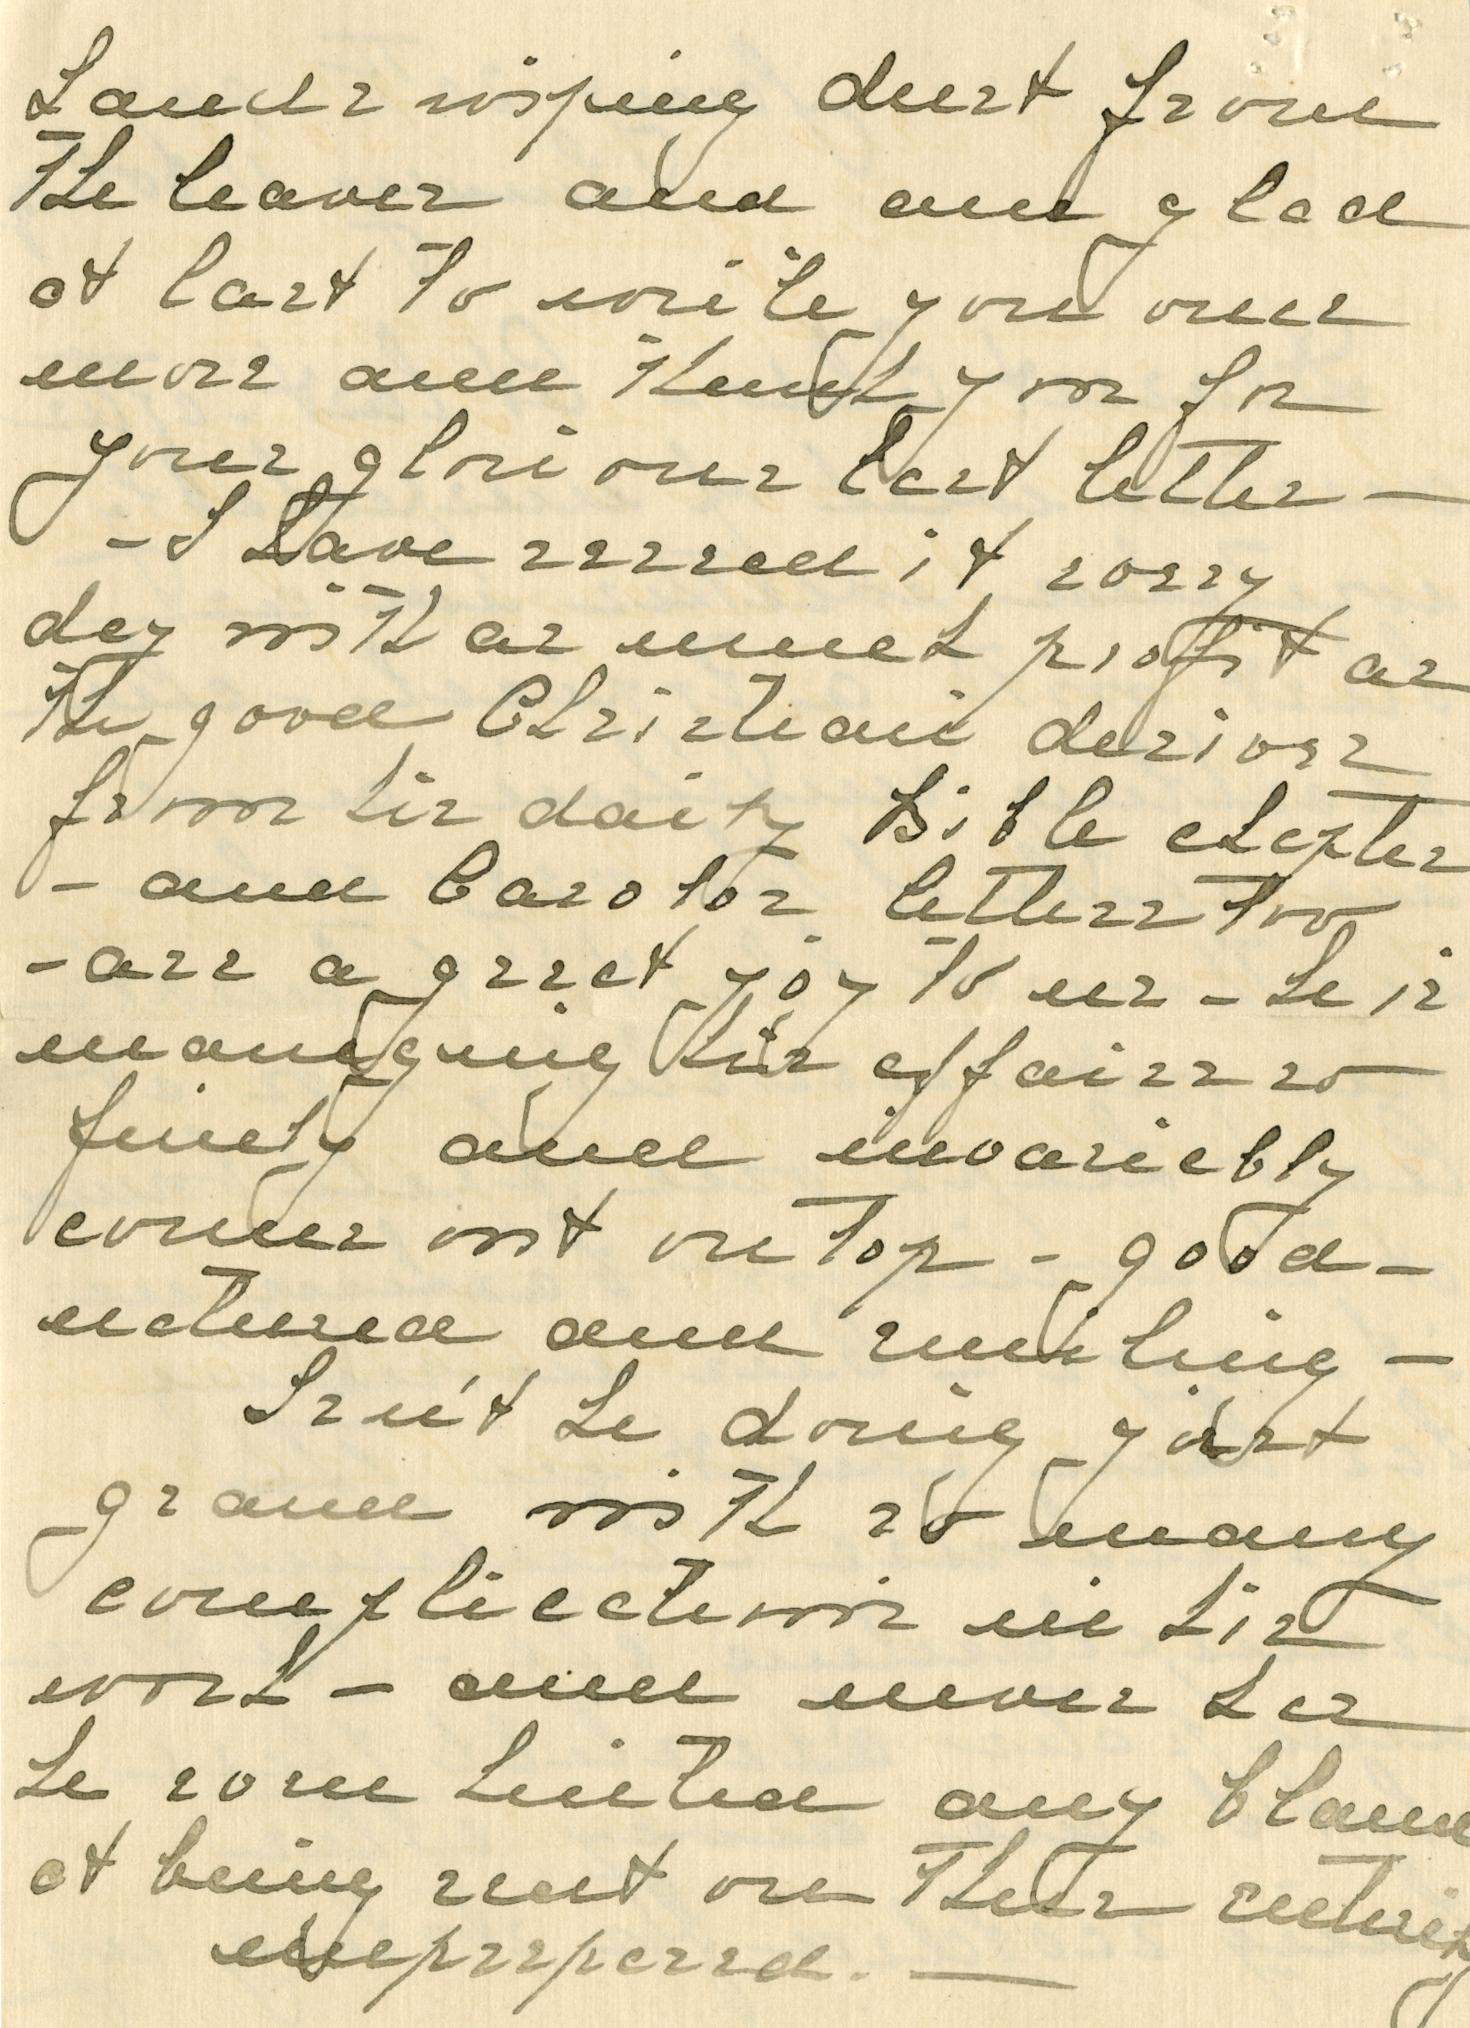 hands wiping dust from
the leaves and am glad
at last to write you once
more and thank you for
your glorious last letter —
- I have rereread it every
day with as much profit as
the good Christian derives
from his daily Bible chapter
- and letters too
- are a great yoy to us - he is
managing his affairs so
finely and invariably
comes out on top - good -
natured and smiling -
Isn't he doing yust
grand with so many
complications in his
work - and never has
he even hinted any blame
at being sent on there entirely
unprepared. —